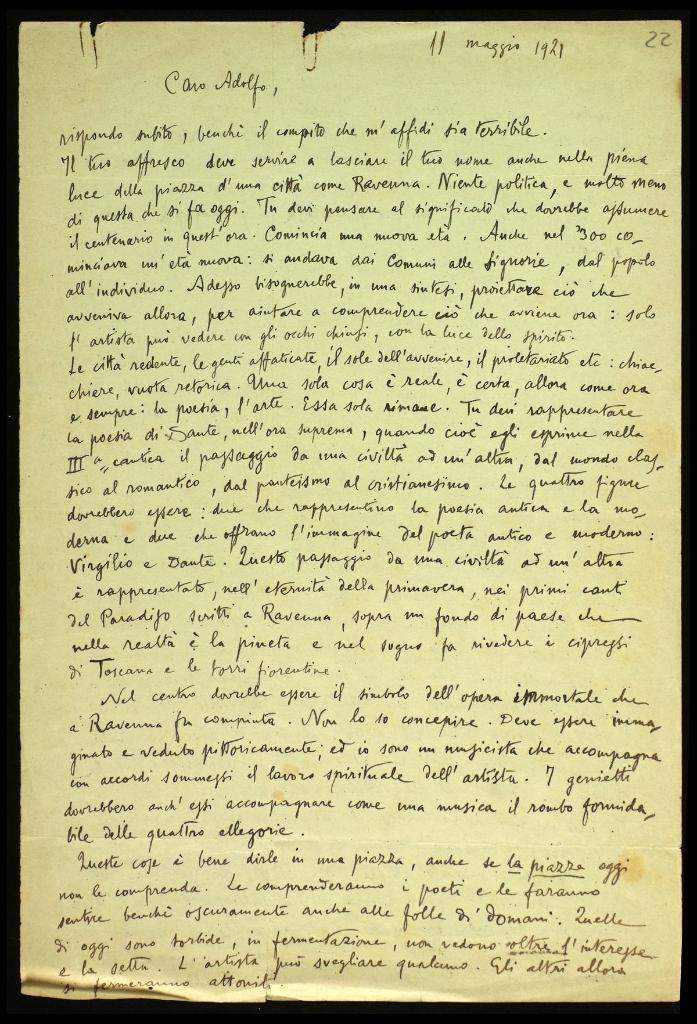 22
11 maggio 1921
Caro Adolfo,
rispondo subito, benchè il compito che m'affidi sia terribile.
Il tuo affresco deve servire a lasciare il tuo nome anche nella piena
luce della piazza d'una città come Ravenna. Niente politica, e molto meno
di questa che si fa oggi. Tu devi pensare al significato che dovrebbe assumere
il centenario in quest'ora. Comincia una nuova età. Anche nel '300 co-
minciava un'età nuova: si andava dai Comuni alle Signorie, dal popolo
all'individuo. Adesso bisognerebbe, in una sintesi, proiettare ciò che
avveniva allora, per aiutare a comprendere ciò che avviene ora: solo
l'artista può vedere con gli occhi chiusi, con la luce dello spirito.
Le città redente, le genti affaticate, il sole dell'avvenire, il proletariato etc: chiac-
chiere, vuota retorica. Una sola cosa è reale, è certa, allora come ora
e sempre: la poesia, l'arte. Essa sola rimane. Tu devi rappresentare
la poesia di Dante, nell'ora suprema, quando cioè egli esprime nella
IIIa cantica il passaggio da una civiltà ad un'altra, dal mondo clas-
sico al romantico, dal panteismo al cristianesimo. Le quattro figure
dovrebbero essere: due che rappresentino la poesia antica e la mo-
derna e due che offrano l'immagine del poeta antico e moderno:
Virgilio e Dante. Questo passaggio da una civiltà ad un'altra
è rappresentato, nell'eternità della primavera, nei primi canti
del Paradiso scritti a Ravenna, sopra un fondo di paese che
nella realtà è la pineta e nel sogno fa rivedere i cipressi
di Toscana e le torri fiorentine.
Nel centro dovrebbe essere il simbolo dell'opera immortale che
a Ravenna fu compiuta. Non lo so concepire. Deve essere imma-
ginato e veduto pittoricamente; ed io sono un musicista che accompagna
con accordi sommessi il lavoro spirituale dell'artista. I genietti
dovrebbero anch'essi accompagnare come una musica il rombo formida-
bile delle quattro allegorie.
Queste cose è bene dirle in una piazza, anche se la piazza oggi
non le comprenda. Le comprenderanno i poeti e le faranno
sentire benchè oscuramente anche alle folle di domani. Quelle
di oggi sono torbide, in fermentazione, non vedono oltre l'interesse
e la setta. L'artista può svegliare qualcuno. Gli altri allora
si fermeranno attoniti.